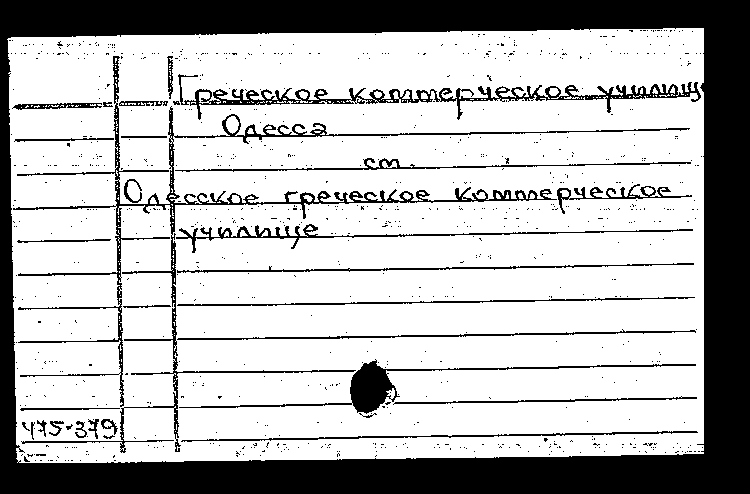 Греческое коммерческое училище
Одесса
см.
Одесское греческое коммерческое
училище
475-379